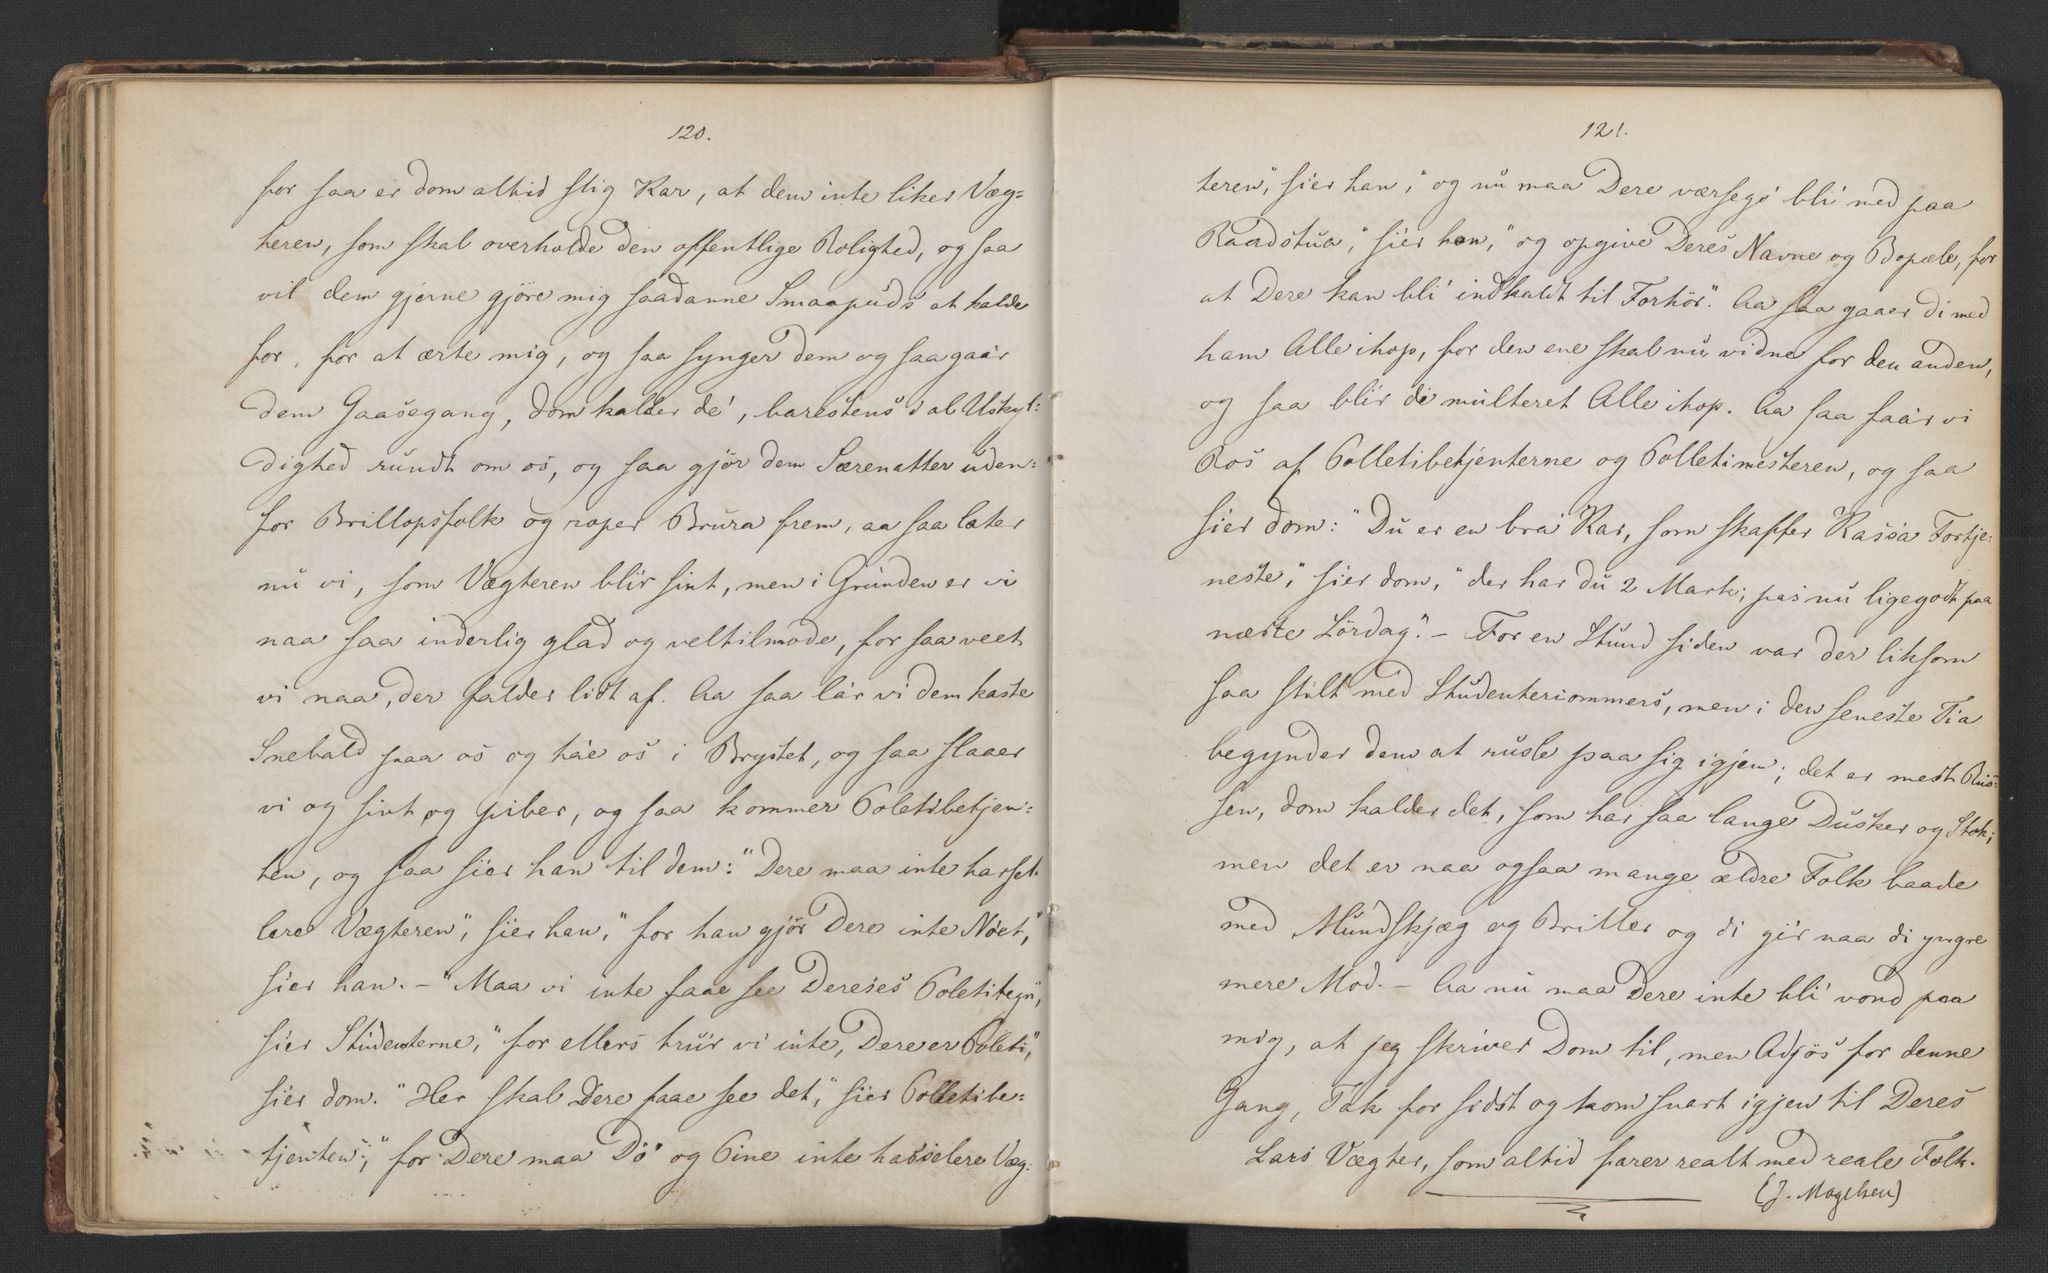 120.
for saa er dom altid slig Kar, at dem inte liker Væg=
teren, som skal overholde den offentlige Rolighed, og saa
vil dem gjerne gjöre mig saadanne Smaapuds at kalde
for, for at ærte mig, og saa synger dem og saa gaar
dem Gaasegang, dom kalder de', barestens i al Uskyl=
dighed rundt om os, og saa gjör dem Særenatter uden=
for Brillopsfolk og roper Brura frem, aa saa later
nu vi, som Vægteren blir sint, men i Grunden er vi
naa saa inderlig glad og veltilmode, for saa veet
vi naa, der falder lidt af. Aa saa lar vi dem kaste
Snebald paa os og ta'e os i Brystet, og saa slaaer
vi og sint og piber, og saa kommer Poletibetjen=
ten, og saa sier han til dem: "Dere maa inte harsel=
lere Vægteren", sier han, "for han gjör Dere inte Nöet,"
sier han. - "Maa vi inte faae see Dereses Poletitegn",
sier Studenterne, "for ellers trur vi inte, Dere er Poleti,"
sier dom. "Her skal Dere faae see det," sier Polletibe=
tjenten; "for Dere maa Dö og Pine inte hasselere Væg=
121.
teren", sier han, "og nu maa Dere værsego' bli' med paa
Raadstua," sier han, "og opgive Deres Navne og Bopæle, for
at Dere kan bli' indkaldt til Forhör". Aa saa gaaer di med
ham Alle ihop, for den ene skal nu vidne for den anden,
og saa blir di multeret Alle ihop. Aa saa faar vi
Ros af Polletibetjenterne og Polletimesteren, og saa
sier dom: "Du er en bra' Kar, som skaffer Kassa Fortje=
neste," sier dom, "der har du 2 Mark; pas nu ligegodt paa
næste Lördag." - For en Stund siden var der liksom
saa stilt med Studentercommers, men i den seneste Tia
begynder dem at rusle paa sig igjen; det er mest Rus=
sen, dom kalder det, som har saa lange Dusker og Stok;
men det er naa ogsaa mange ældre Folk baade
med Mundskjæg og Briller og di gir naa di yngre
mere Mod. - Aa nu maa Dere inte bli' vond paa
mig, at jeg skriver Dom til, men Adjös for denne
Gang, Tak for sidst og kom snart igjen til Deres
Lars Vægter, som altid farer realt med reale Folk.
(J. Magelsen)